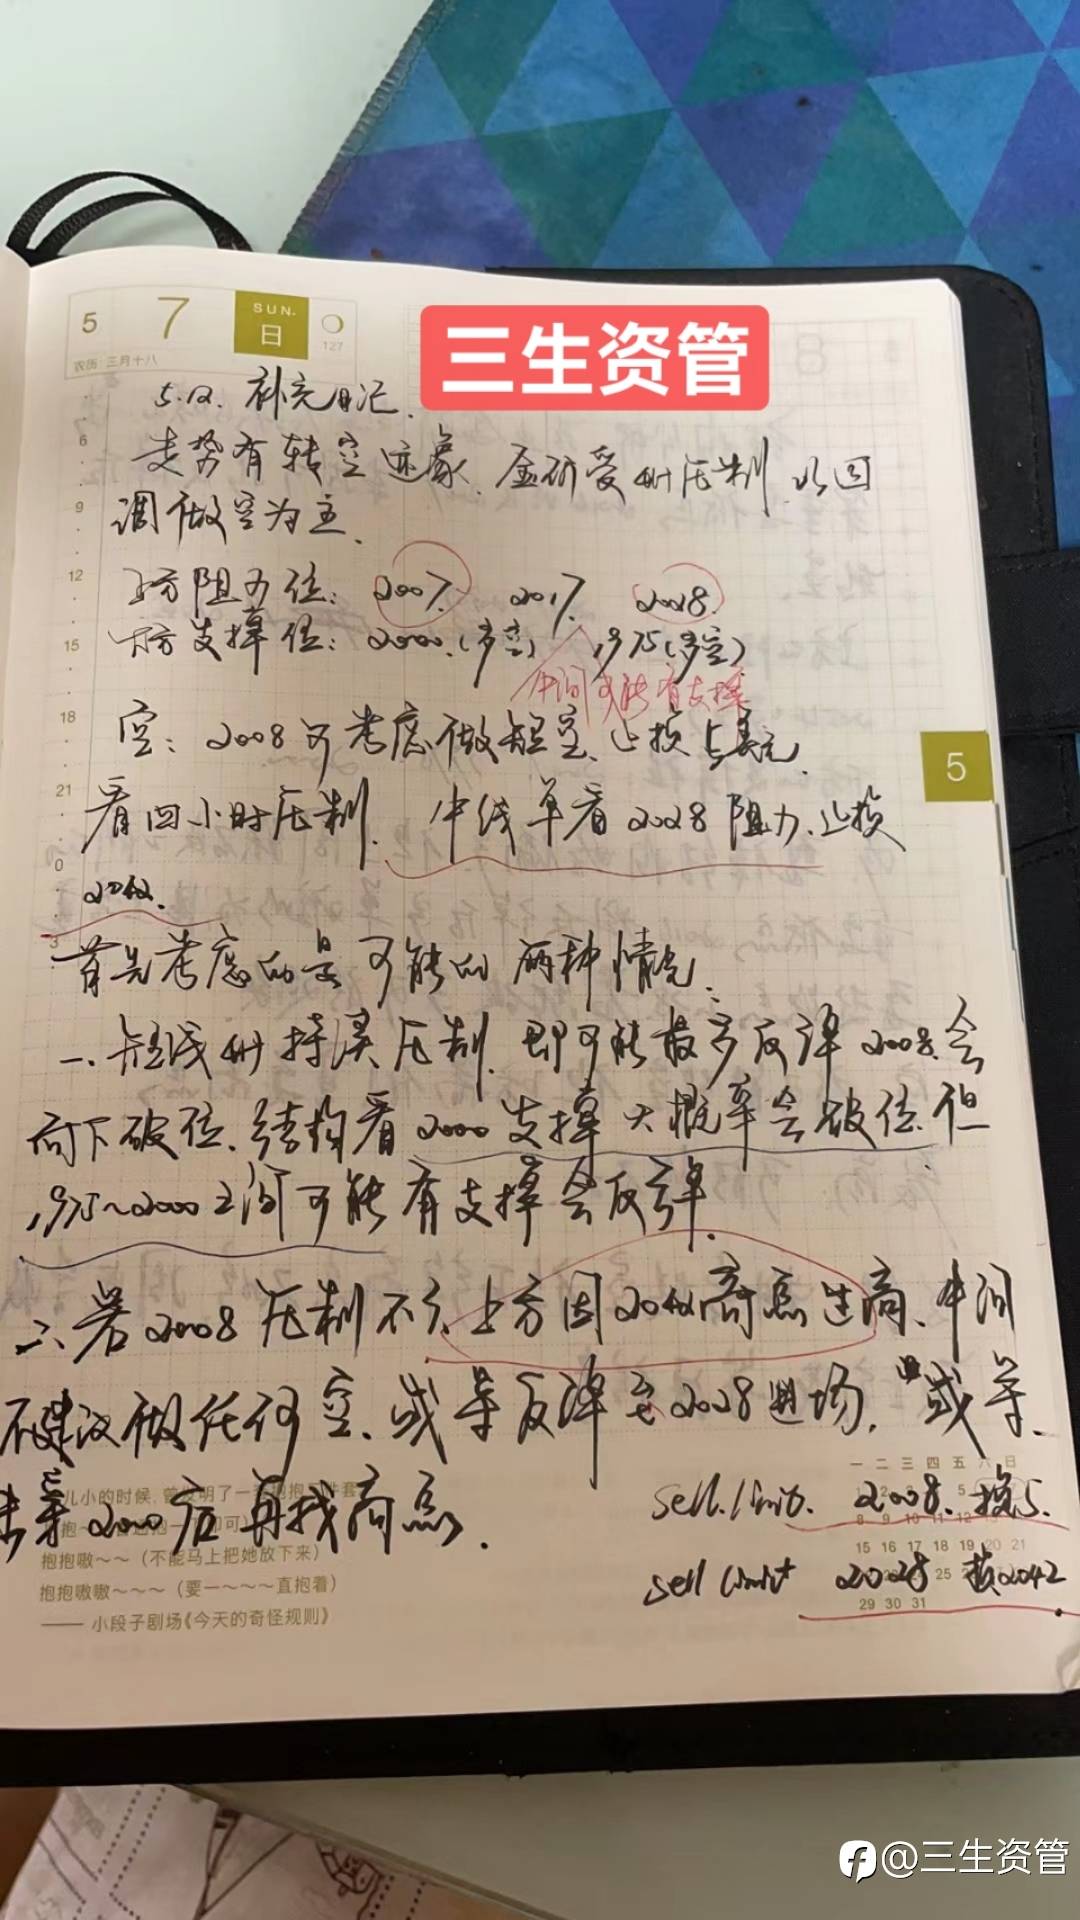 5 7 SUN. 日
127
农历:三月十八
三生资管
5.12. 补充日记.
走势有转空迹象.金价受4h压制.以回
调做空为主.
上方阻力位: 2007. 2017. 2028.
下方支撑位: 2000.(多空) 1975(多空)
中间可能有支撑
空: 2008可考虑做短空.止损5美元.
看四小时压制. 中线单看2028阻力.止损
2042.
首先考虑的是可能的两种情况.
一.短线4h持续压制.即可能最多反弹2008.会
向下破位.结构看2000支撑大概率会破位.但
1975~2000之间可能有支撑会反弹.
二.若2008压制不了.上方因2042高点过高.中间
不建议做任何空.或等反弹至2028进场.或等
2000后再找高点.
sell.limit. 2008. 损5.
sell limit 2028 损2042
6
9
12
15
18
21
0
3
5
一 二 三 四 五 六 日
8 9 10 11 12
15 16 17 18 19 20 21
25
29 30 31
抱抱嗷~~(不能马上把她放下来)
抱抱嗷嗷~~~~(要一~~~~直抱着)
——小段子剧场《今天的奇怪规则》
@三生资管